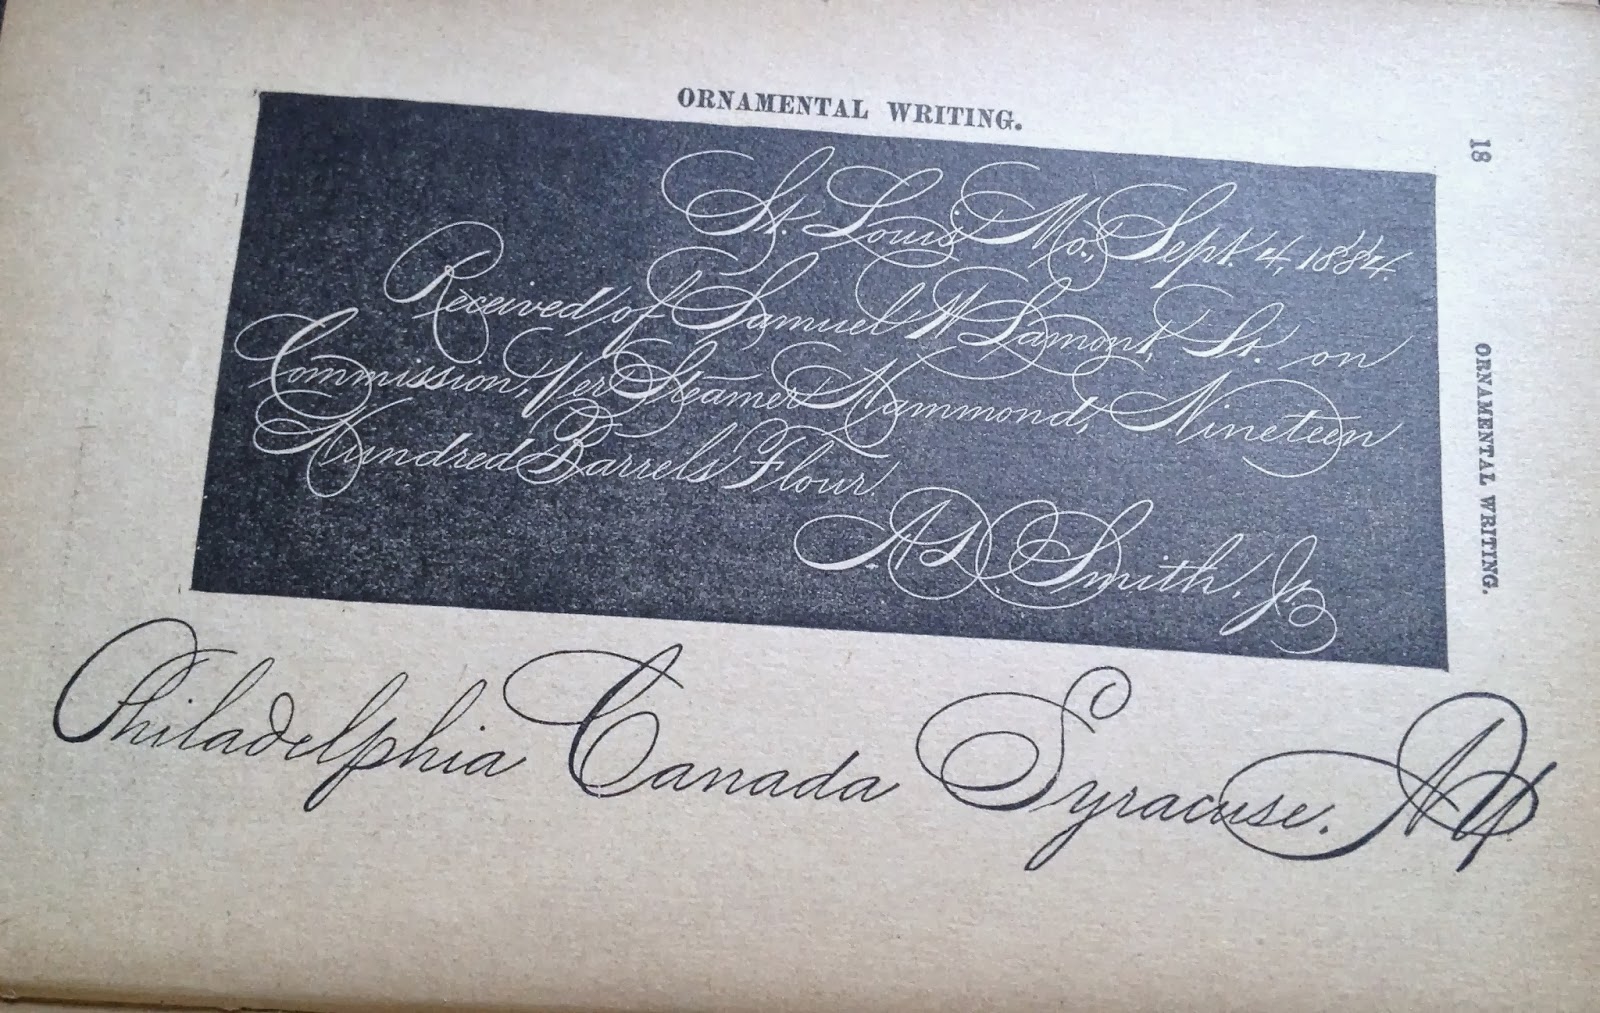 ORNAMENTAL WRITING.
18
ORNAMENTAL WRITING.
St. Louis, Mo., Sept. 4, 1884.
Received of Samuel W Lamont, Sr. on
Commission, per Steamer Hammond, Nineteen
Hundred Barrels Flour.
A. S. Smith, Jr.
Philadelphia Canada Syracuse. N.Y.